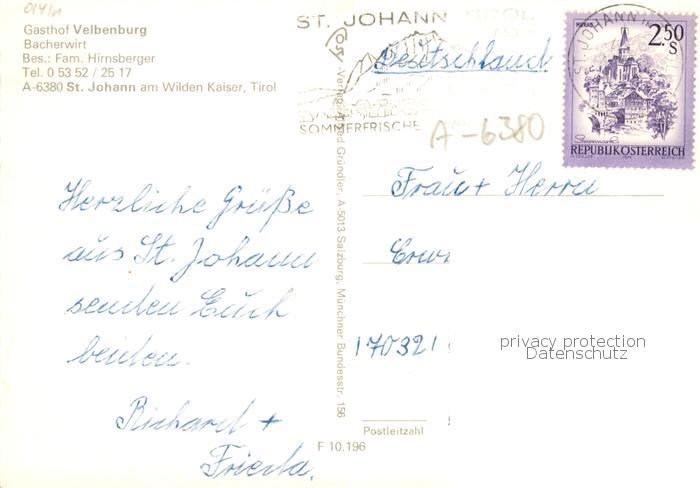 Gasthof Velbenburg
Bacherwirt
Bes.: Fam. Hirnsberger
Tel. 0 53 52 / 25 17
A-6380 St. Johann am Wilden Kaiser, Tirol
ST. JOHANN TIROL
SOMMERFRISCHE
ST. JOHANN
2.50
S
REPUBLIK ÖSTERREICH
Deutschland
A-6380
Herzliche Grüße
aus St. Johann
senden Euch
beiden.
Richard +
Frieda.
Verlag Alfred Gründler, A-5013 Salzburg, Münchner Bundesstr. 156
Frau + Herrn
Erw
170321
privacy protection
Datenschutz
Postleitzahl
F 10.196